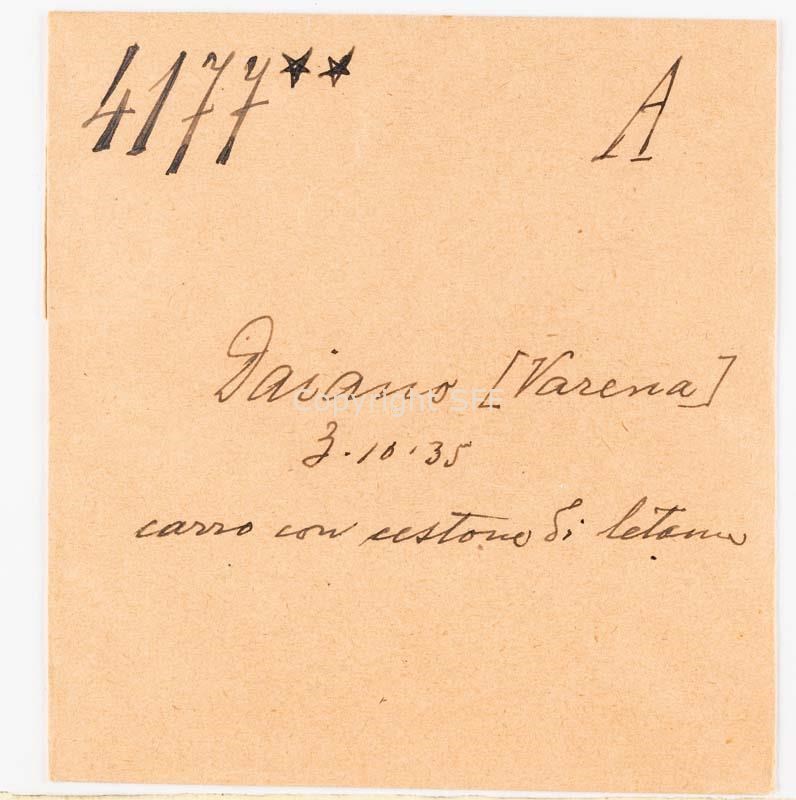 4177** A
Daiano [Varena]
Copyright SFE
3.10.35
carro con cestone di letame